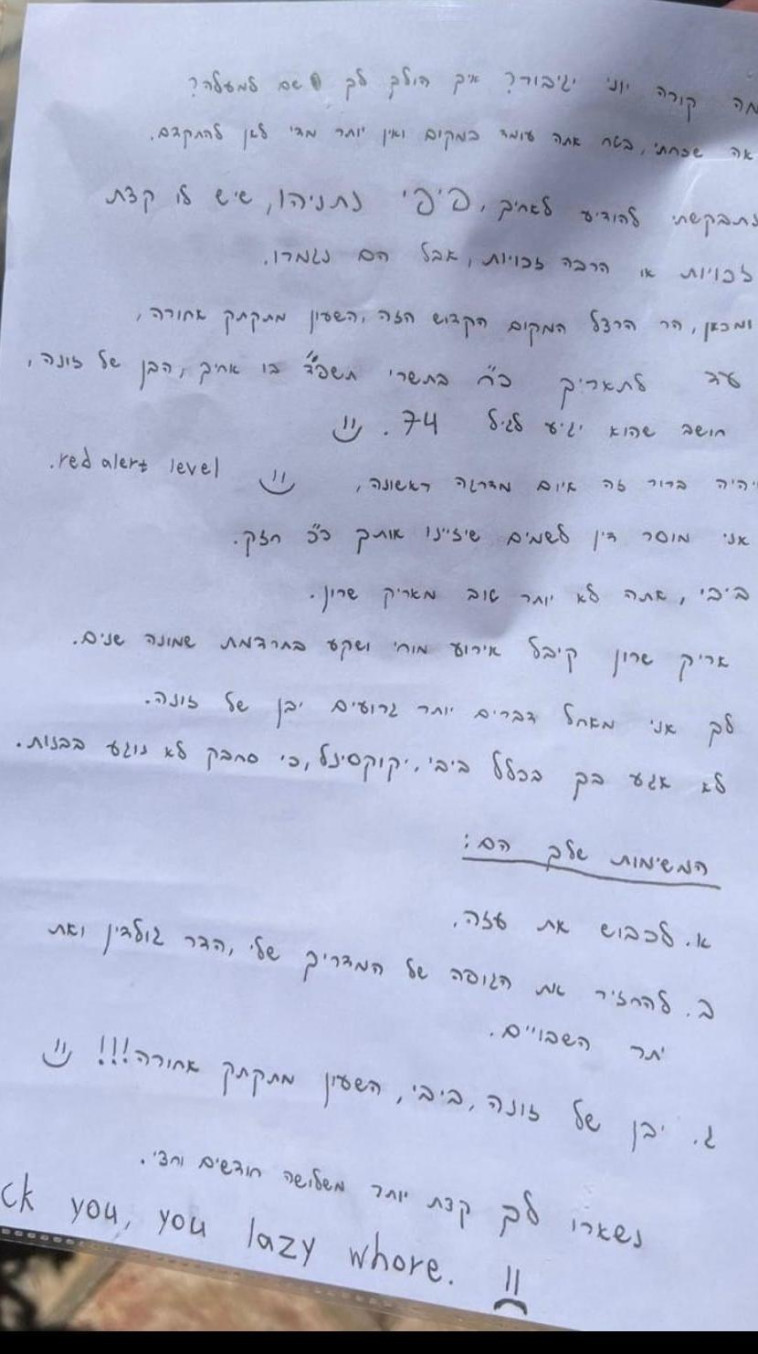 מה קורה יוני יגיבור? איך הולך לך שם למעלה?
אה שכחתי, בטח אתה עומד במקום ואין יותר מדי לאן להתקדם.
נתבקשתי להודיע לאחיך, פיפי נתניהו, שיש לו קצת
זכויות או הרבה זכויות, אבל הם נגמרו.
ומכאן, הר הרצל המקום הקדוש הזה, השעון מתקתק אחורה,
עד לתאריך כ"ח בתשרי תשפ"ד בו אחיך, הבן של זונה,
חושב שהוא יגיע לגיל 74.
יהיה ברור זה איום מדרגה ראשונה, red alert level.
אני מוסר דין לשמים שיזיינו אותך כ"כ חזק.
ביבי, אתה לא יותר טוב מאריק שרון.
אריק שרון קיבל אירוע מוחי ושקע בתרדמת שמונה שנים.
לך אני מאחל דברים יותר גרועים יבן של זונה.
לא אגע בך בכלל ביבי, יקוקסינל, כי סחבק לא נוגע בבנות.
המשימות שלך הם:
א. לכבוש את עזה.
ב. להחזיר את הגופה של המדריך שלי, הדר גולדין ואת
יתר השבויים.
ג. יבן של זונה, ביבי, השעון מתקתק אחורה!!!
נשארו לך קצת יותר משלושה חודשים וחצי.
ck you, you lazy whore.